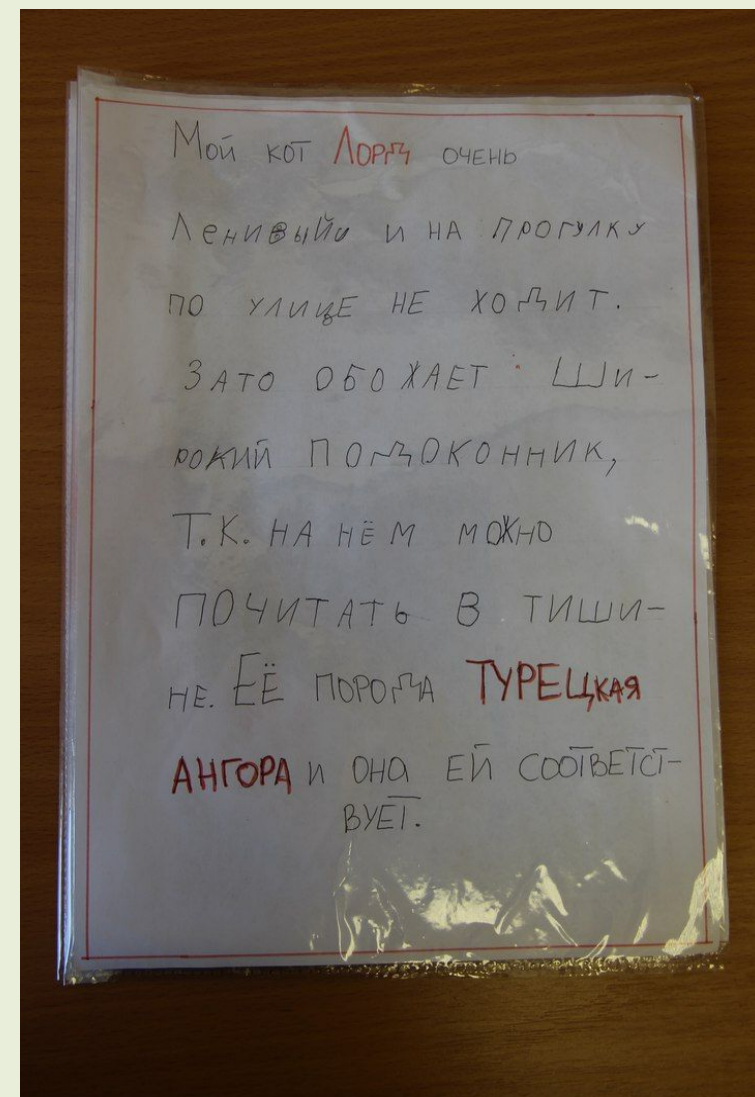 Мой кот Лорд очень
Ленивый и на прогулку
по улице не ходит.
Зато обожает ши-
рокий подоконник,
т.к. на нём можно
почитать в тиши-
не. Её порода ТУРЕЦКАЯ
АНГОРА и она ей соответст-
вует.